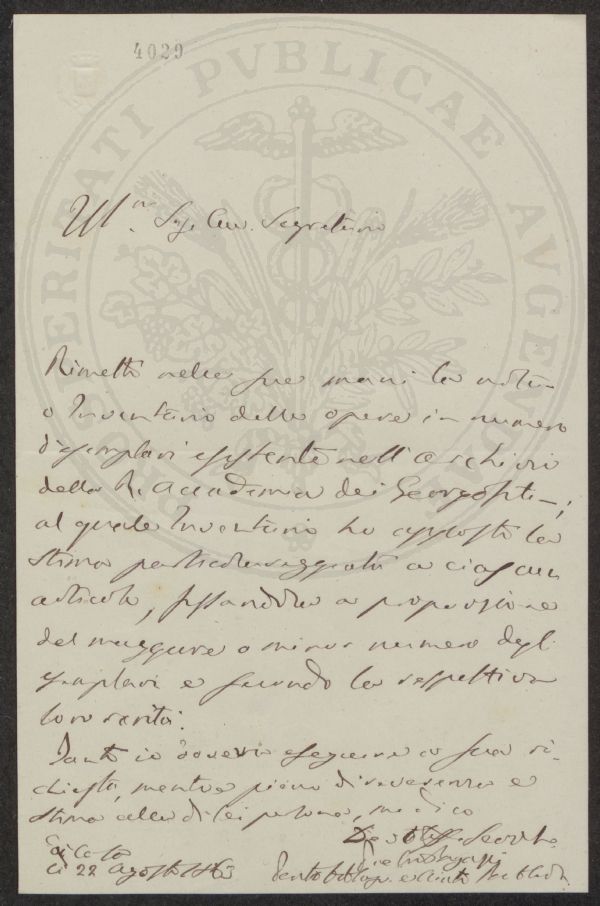 4029
Ill.mo Sig. Cav. Segretario
Rimetto nelle sue mani la nota
o Inventario delle opere in numero
d'esemplari esistente nell'archivio
della R. Accademia dei Georgofili;
al quale Inventario ho apposto la
stima particolareggiata a ciascun
articolo, fissandola a proporzione
del maggiore o minor numero degli
esemplari e secondo la respettiva
loro rarità.
Tanto io doveva eseguire a sua ri-
chiesta, mentre pieno di riverenza e
stima alla di lei persona, mi dico
Di Casa
li 22 Agosto 1863